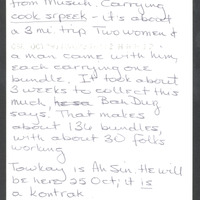 from Musuh. Carrying
cook srpeek - it's about
a 3 mi trip Two women &
a man came with him,
each carrying one
bundle. It took about
3 weeks to collect this
much, Bah Dug
says. That makes
about 136 bundles,
with about 30 folks
working
Towkay is Ah Sin. He will
be here 25 Oct; it is
a kontrak